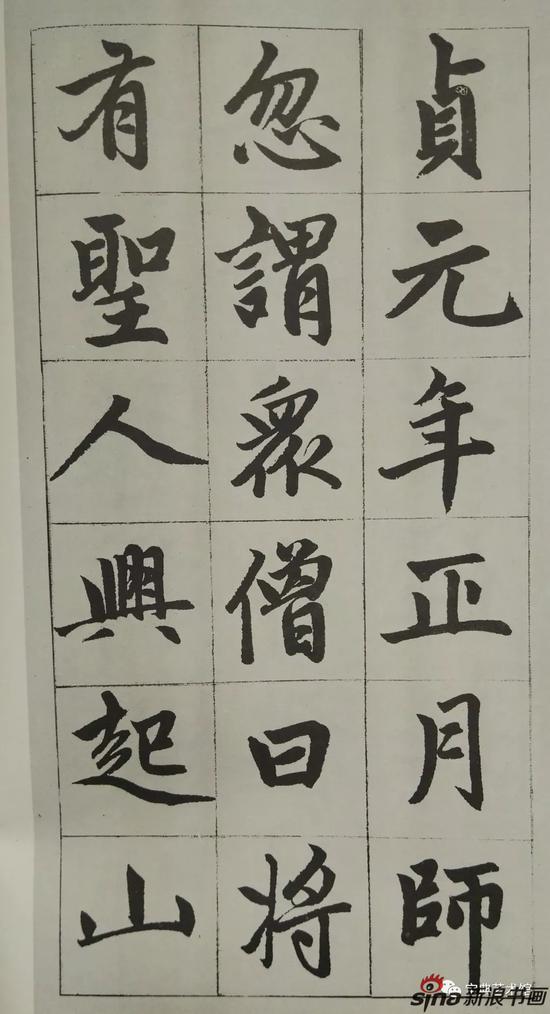 貞元年正月師
忽謂衆僧曰將
有聖人興起山
sina新浪书画